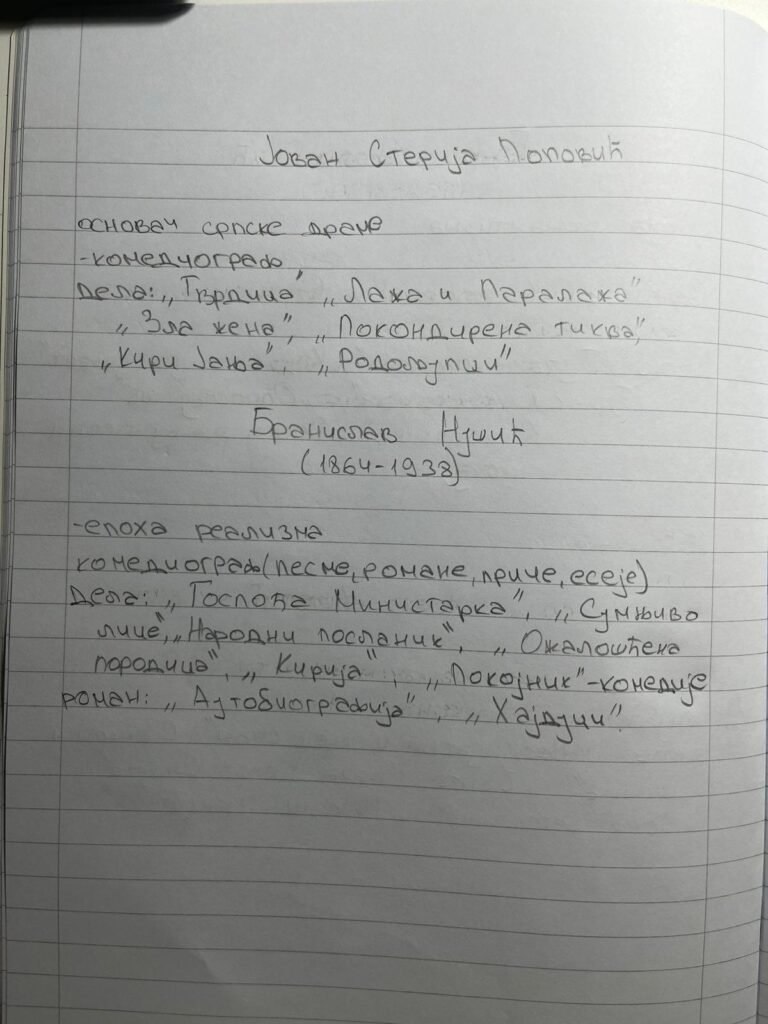 Јован Стерија Поповић
основач српске драме
-комедиограф,
дела: „Тврдица" „Лажа и Паралажа"
„Зла жена", „Покондирена тиква",
„Кири Јања", „Родољупци"
Бранислав Нушић
(1864-1938)
-епоха реализма
комедиограф(песме, романе, приче, есеје)
Дела: „Госпођа Министарка", „Сумњиво
лице", „Народни посланик", „Ожалошћена
породица", „Кирија", „Покојник"-комедије
роман: „Аутобиографија", „Хајдуци".